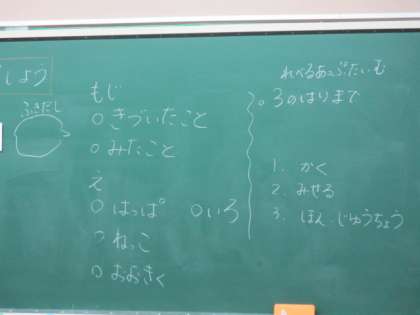 しょう
ふきだし
もじ
○きづいたこと
○みたこと
え
○はっぱ ○いろ
○ねっこ
○おおきく
れべるあっぷたいむ
○3のはりまで
1. かく
2. みせる
3. ほん・じゆうちょう